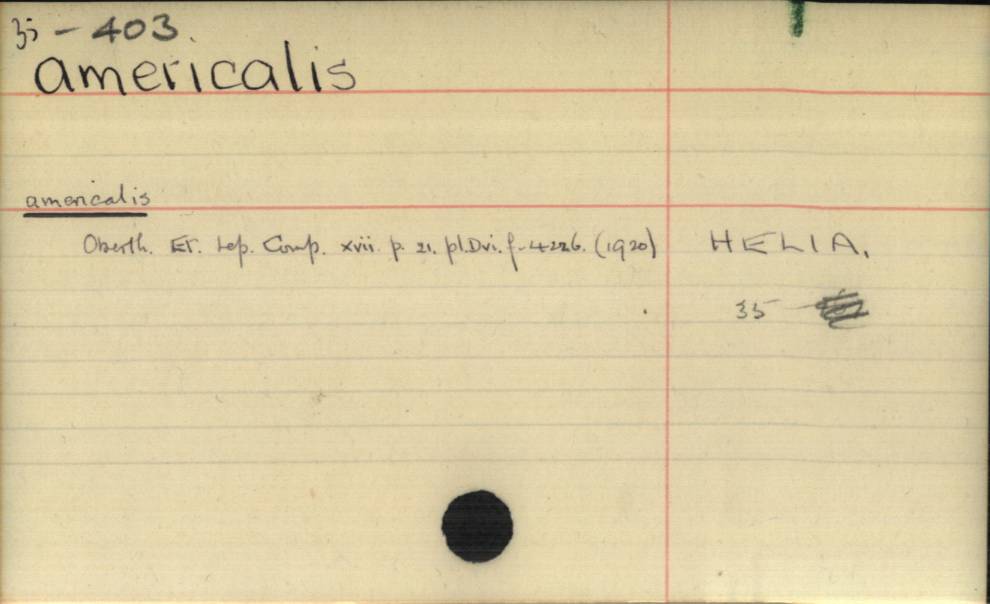 35-403.
americalis
americalis
Oberth. Et. Lep. Comp. xvii. p. 21. pl.Dvi. f. 4226. (1920) HELIA.
35 -